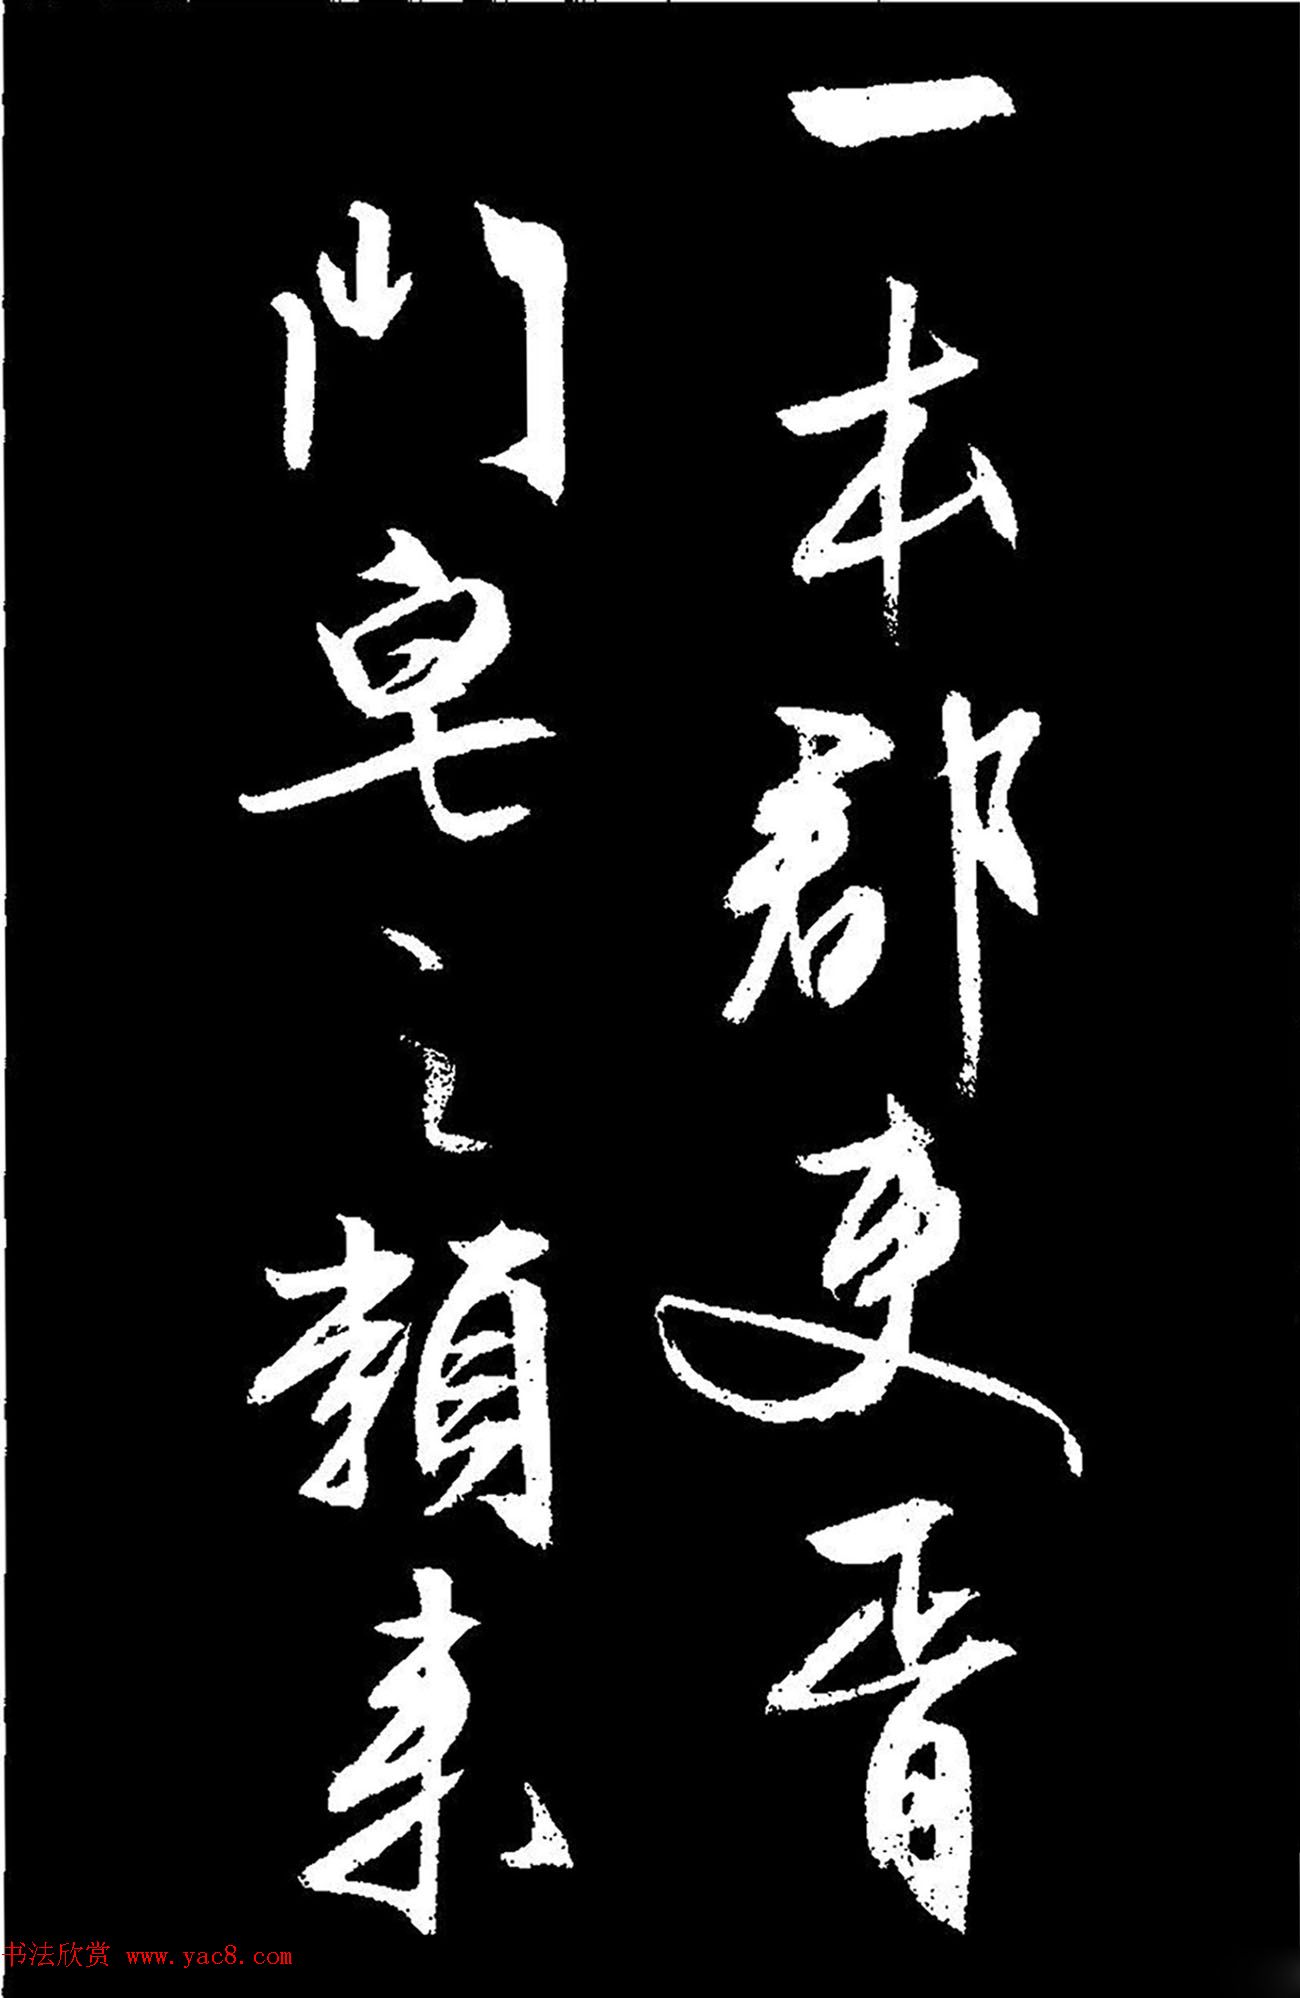 一本郡吏胥
門皂之類來
书法欣赏 www.yac8.com